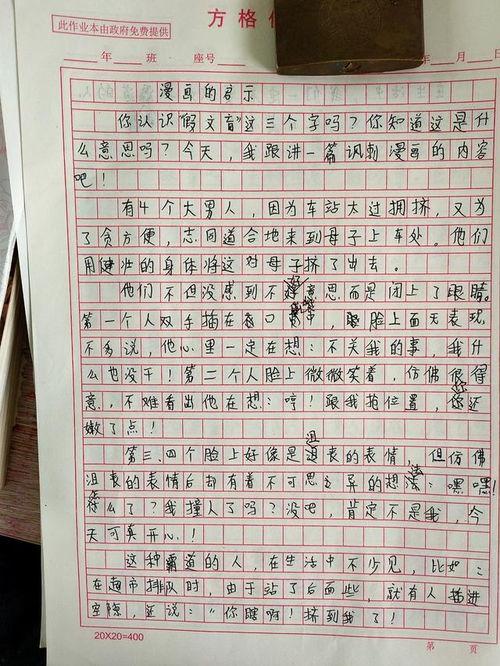 此作业本由政府免费提供
方格
年 班 座号 年 月 日
漫画的启示
你认识假文盲这三个字吗？你知道这是什
么意思吗？今天，我跟讲一篇讽刺漫画的内容
吧！
有4个大男人，因为车站太过拥挤，又为
了贪方便，志同道合地来到母子上车处。他们
用健壮的身体将这对母子挤了出去。
他们不但没感到不好意思而是闭上了眼睛。
第一个人双手插在 口 中，脸上面无表现，
不多说，他心里一定在想：不关我的事，我什
么也没干！第二个人脸上微微笑着，仿佛很得
意，不难看出他在想：哼！跟我抢位置，你还
嫩了点！
第三、四个脸上好像是沮丧的表情，但仿佛
沮丧的表情后却有着不可思之异的想法：嘿嘿！
怎么了？我撞人了吗？没吧，肯定不是我，今
天可真开心！
这种霸道的人，在生活中不少见，比如：
在超市排队时，由于站了后面些，就有人插进
空隙，还说：“你瞎啊！挤到我了！
20X20=400
第 页